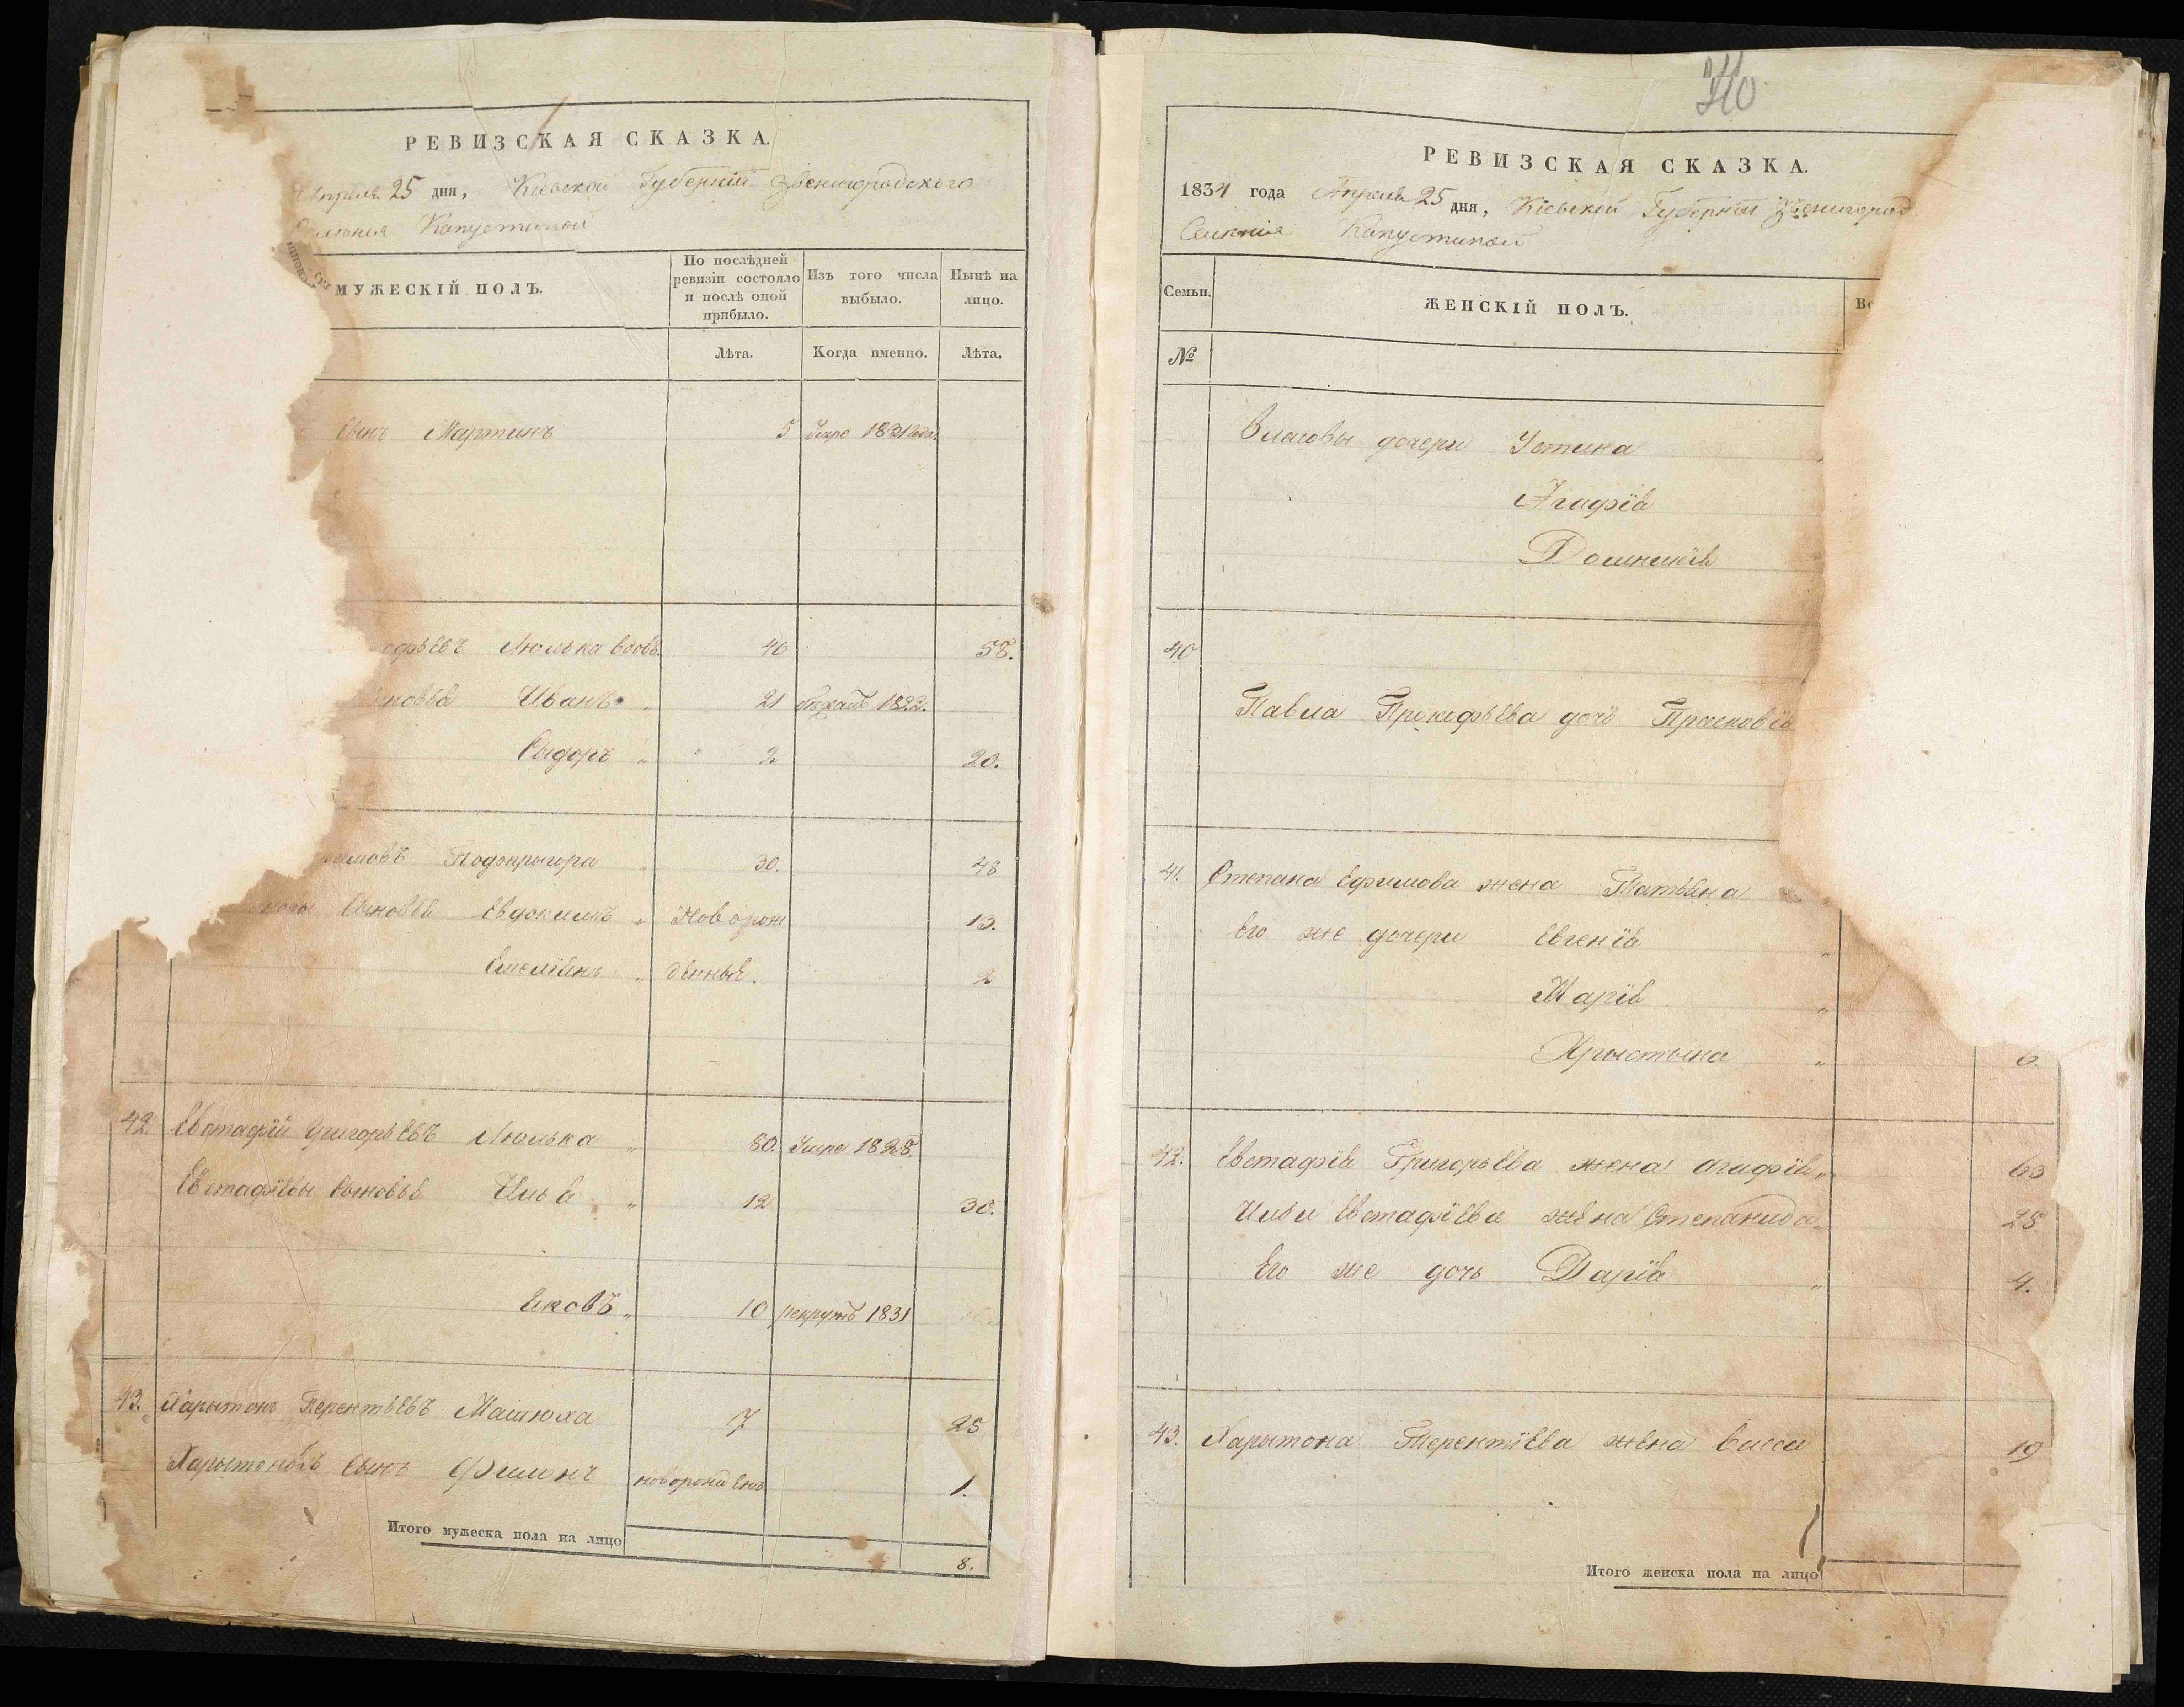 РЕВИЗСКАЯ СКАЗКА.
Апреля 25 дня, Кіевской Губерніи Звенигородского
Селенія Капустиной
МУЖЕСКІЙ ПОЛЪ.
По послѣдней ревизіи состояло и послѣ оной прибыло.
Изъ того числа выбыло.
Нынѣ на лицо.
Лѣта.
Когда именно.
Лѣта.
Сынъ Мартинъ 5 Умре 1831 года.
Люлька 40 58.
Иванъ 21 1822.
Сыдоръ 2 20.
Подопрыгора 30. 48
Сыновья Евдокимъ Новорож 13.
Емеліянъ денные. 2
42. Евстафій Григорьевъ Люлька 80. Умре 1828.
Евстафіевы Сыновья Илья 12 30.
Яковъ 10 рекрутъ 1831
43. Харытонъ Терентьевъ Матюха 7 25
Харытоновъ Сынъ Филонъ новорожденъ 1.
Итого мужеска пола на лицо 8.
РЕВИЗСКАЯ СКАЗКА.
1834 года Апреля 25 дня, Кіевской Губерніи Звенигород
Селенія Капустиной
Семьи.
ЖЕНСКІЙ ПОЛЪ.
№
Власовы дочери Устина
Агафія
Домникія
40
Павла Прокофьева дочь Прасковія
41. Степана Ефимова жена Татьяна
Его же дочери Евгенія
Марія
Хрыстына 6.
42. Евстафія Григорьева жена Агафія 63
Ильи Евстафіева жена Степанида 25.
Его же дочь Дарія 4.
43. Харытона Терентіева жена Васса 19
Итого женска пола на лицо